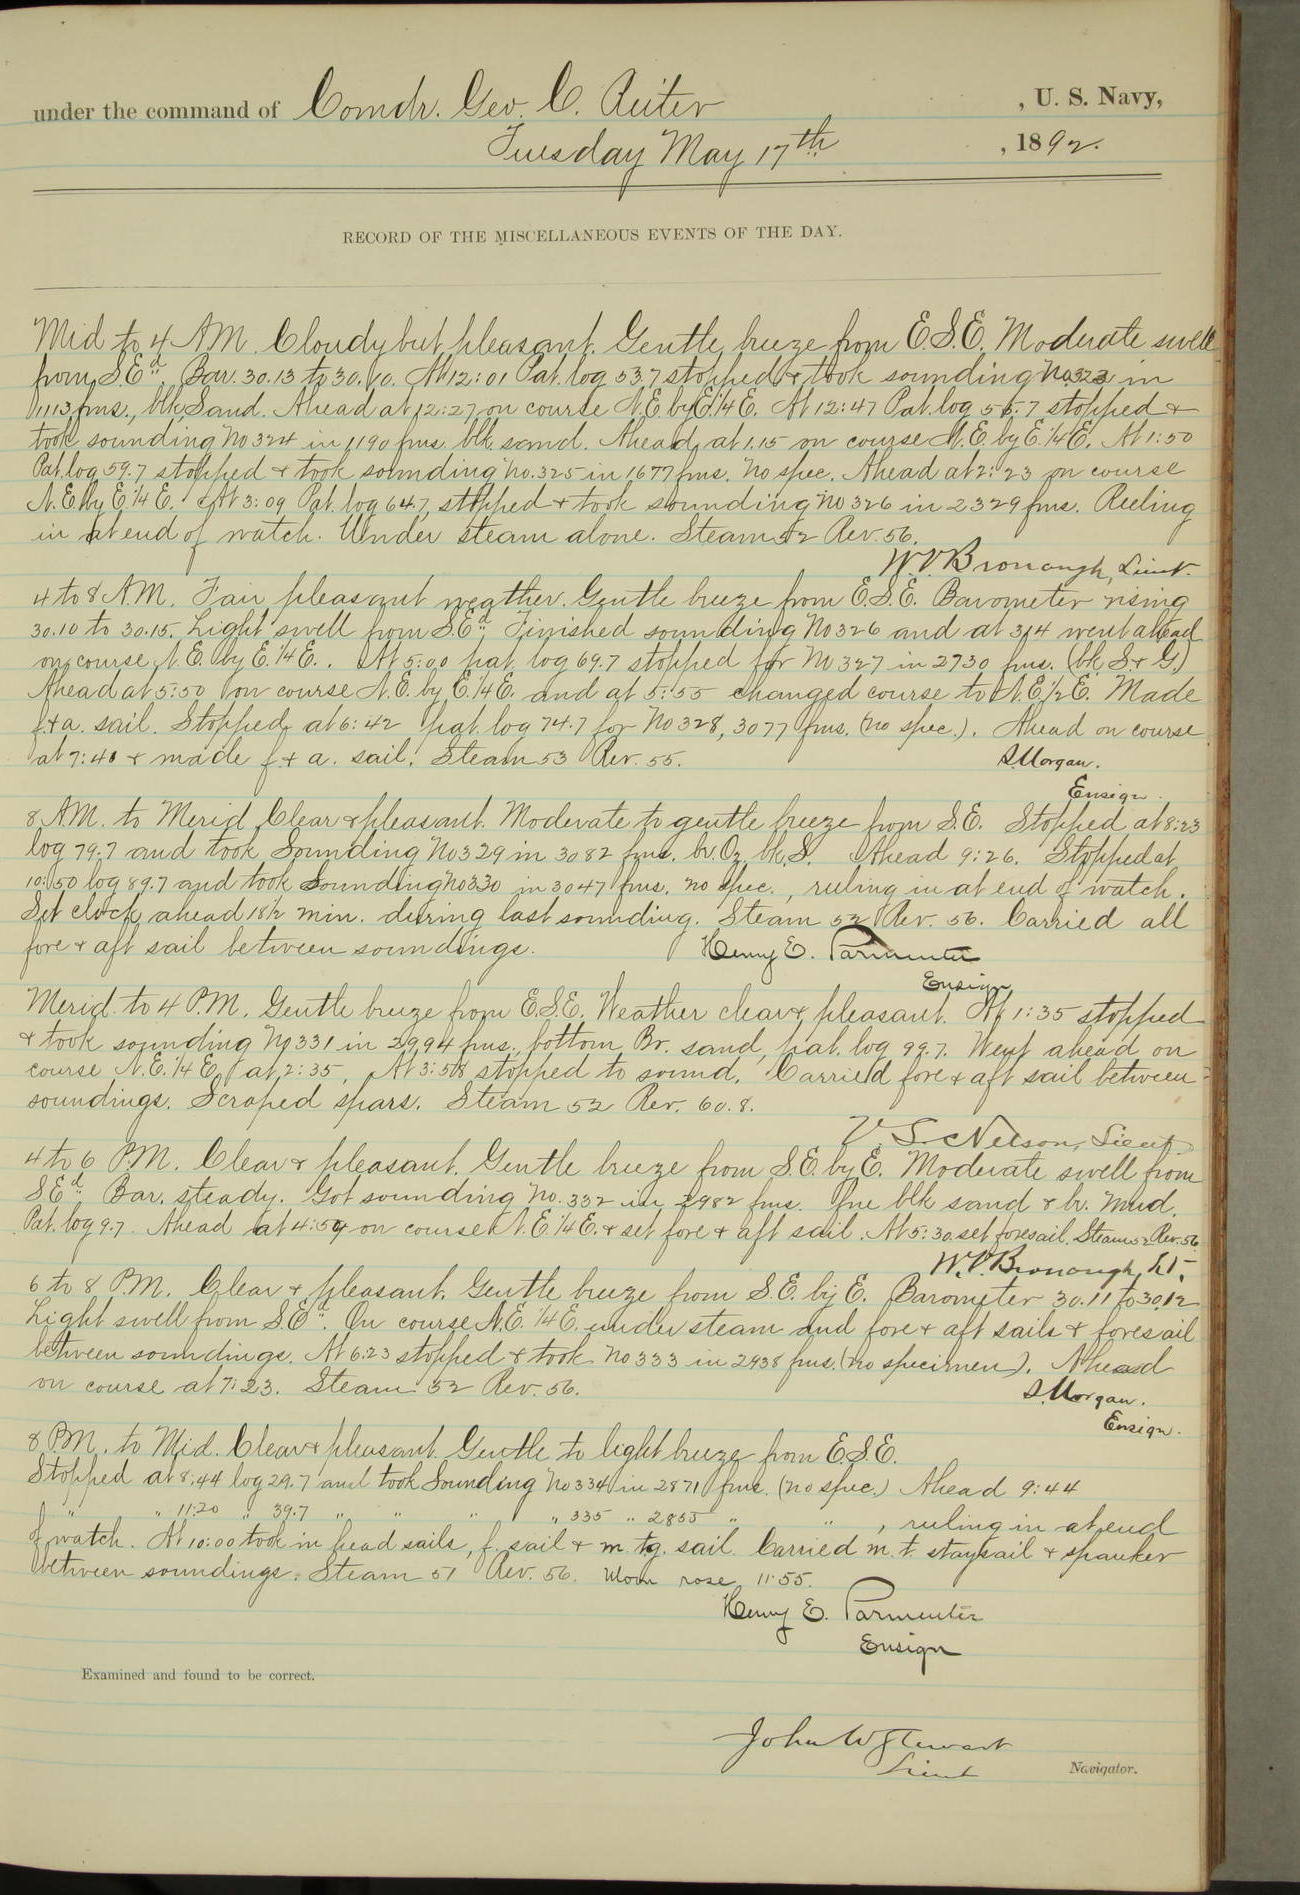 under the command of Comdr. Geo. C. Reiter , U. S. Navy,
Tuesday May 17th , 1892.
RECORD OF THE MISCELLANEOUS EVENTS OF THE DAY.
Mid to 4 AM. Cloudy but pleasant. Gentle breeze from E.S.E. Moderate swell
from S.Ed. Bar. 30.13 to 30.10. At 12:01 Pat. log 53.7 stopped & took sounding No 323 in
1113 fms., blk. Sand. Ahead at 12:27 on course N.E. by E.1/4 E. At 12:47 Pat. log 56.7 stopped &
took sounding No 324 in 1190 fms. blk sand. Ahead at 1.15 on course N.E. by E.1/4 E. At 1:50
Pat. log 59.7 stopped & took sounding No. 325 in 1677 fms. No spec. Ahead at 2:23 on course
N.E. by E.1/4 E. At 3:09 Pat. log 64.7, stopped & took sounding No 326 in 2329 fms. Reeling
in at end of watch. Under steam alone. Steam 52 Rev. 56.
W.V. Bronaugh, Lieut.
4 to 8 A.M. Fair pleasant weather. Gentle breeze from E.S.E. Barometer rising
30.10 to 30.15. Light swell from S.Ed. Finished sounding No 326 and at 3.14 went ahead
on course N.E. by E.1/4 E. At 5:00 pat. log 69.7 stopped for No 327 in 2730 fms. (bk. S. & G.)
Ahead at 5:50 on course N.E. by E.1/4 E. and at 5:55 changed course to N.E.1/2 E. Made
f. & a. sail. Stopped at 6:42 pat. log 74.7 for No 328, 3077 fms. (no spec.). Ahead on course
at 7:40 & made f. & a. sail. Steam 53 Rev. 55.
S. Morgan.
Ensign.
8 A.M. to Merid. Clear & pleasant. Moderate to gentle breeze from S.E. Stopped at 8:23
log 79.7 and took Sounding No 329 in 3082 fms. br. Oz. bk. S. Ahead 9:26. Stopped at
10:50 log 89.7 and took Sounding No 330 in 3047 fms. no spec., reeling in at end of watch.
Set clock ahead 18 1/2 min. during last sounding. Steam 52 Rev. 56. Carried all
fore & aft sail between soundings.
Henry E. Parmenter
Ensign
Merid. to 4 P.M. Gentle breeze from E.S.E. Weather clear & pleasant. At 1:35 stopped
& took sounding No 331 in 2994 fms., bottom Br. sand, pat. log 99.7. Went ahead on
course N.E.1/4 E. at 2:35. At 3:58 stopped to sound. Carried fore & aft sail between
soundings. Scraped spars. Steam 52 Rev. 60.8.
V. S. Nelson, Lieut.
4 to 6 P.M. Clear & pleasant. Gentle breeze from S.E. by E. Moderate swell from
S.Ed. Bar. steady. Got sounding No. 332 in 2982 fms. fne blk sand & br. Mud.
Pat. log 9.7. Ahead at 4:54 on course N.E.1/4 E. & set fore & aft sail. At 5:30 set foresail. Steam 52 Rev. 56
W.V. Bronaugh, Lt.
6 to 8 P.M. Clear & pleasant. Gentle breeze from S.E. by E. Barometer 30.11 to 30.12
Light swell from S.Ed. On course N.E. 1/4 E. under steam and fore & aft sails & foresail
between soundings. At 6:23 stopped & took No 333 in 2938 fms. (no specimen). Ahead
on course at 7:23. Steam 52 Rev. 56.
S. Morgan.
Ensign.
8 P.M. to Mid. Clear & pleasant. Gentle to light breeze from E.S.E.
Stopped at 8:44 log 29.7 and took Sounding No 334 in 2871 fms. (no spec.) Ahead 9:44
" " 11:20 " 39.7 " " " " 335 " 2855 " " , reeling in at end
of watch. At 10:00 took in head sails, f. sail & m. tg. sail. Carried m. t. staysail & spanker
between soundings. Steam 51 Rev. 56. Moon rose 11:55.
Henry E. Parmenter
Ensign
Examined and found to be correct.
John W Stewart
Lieut Navigator.